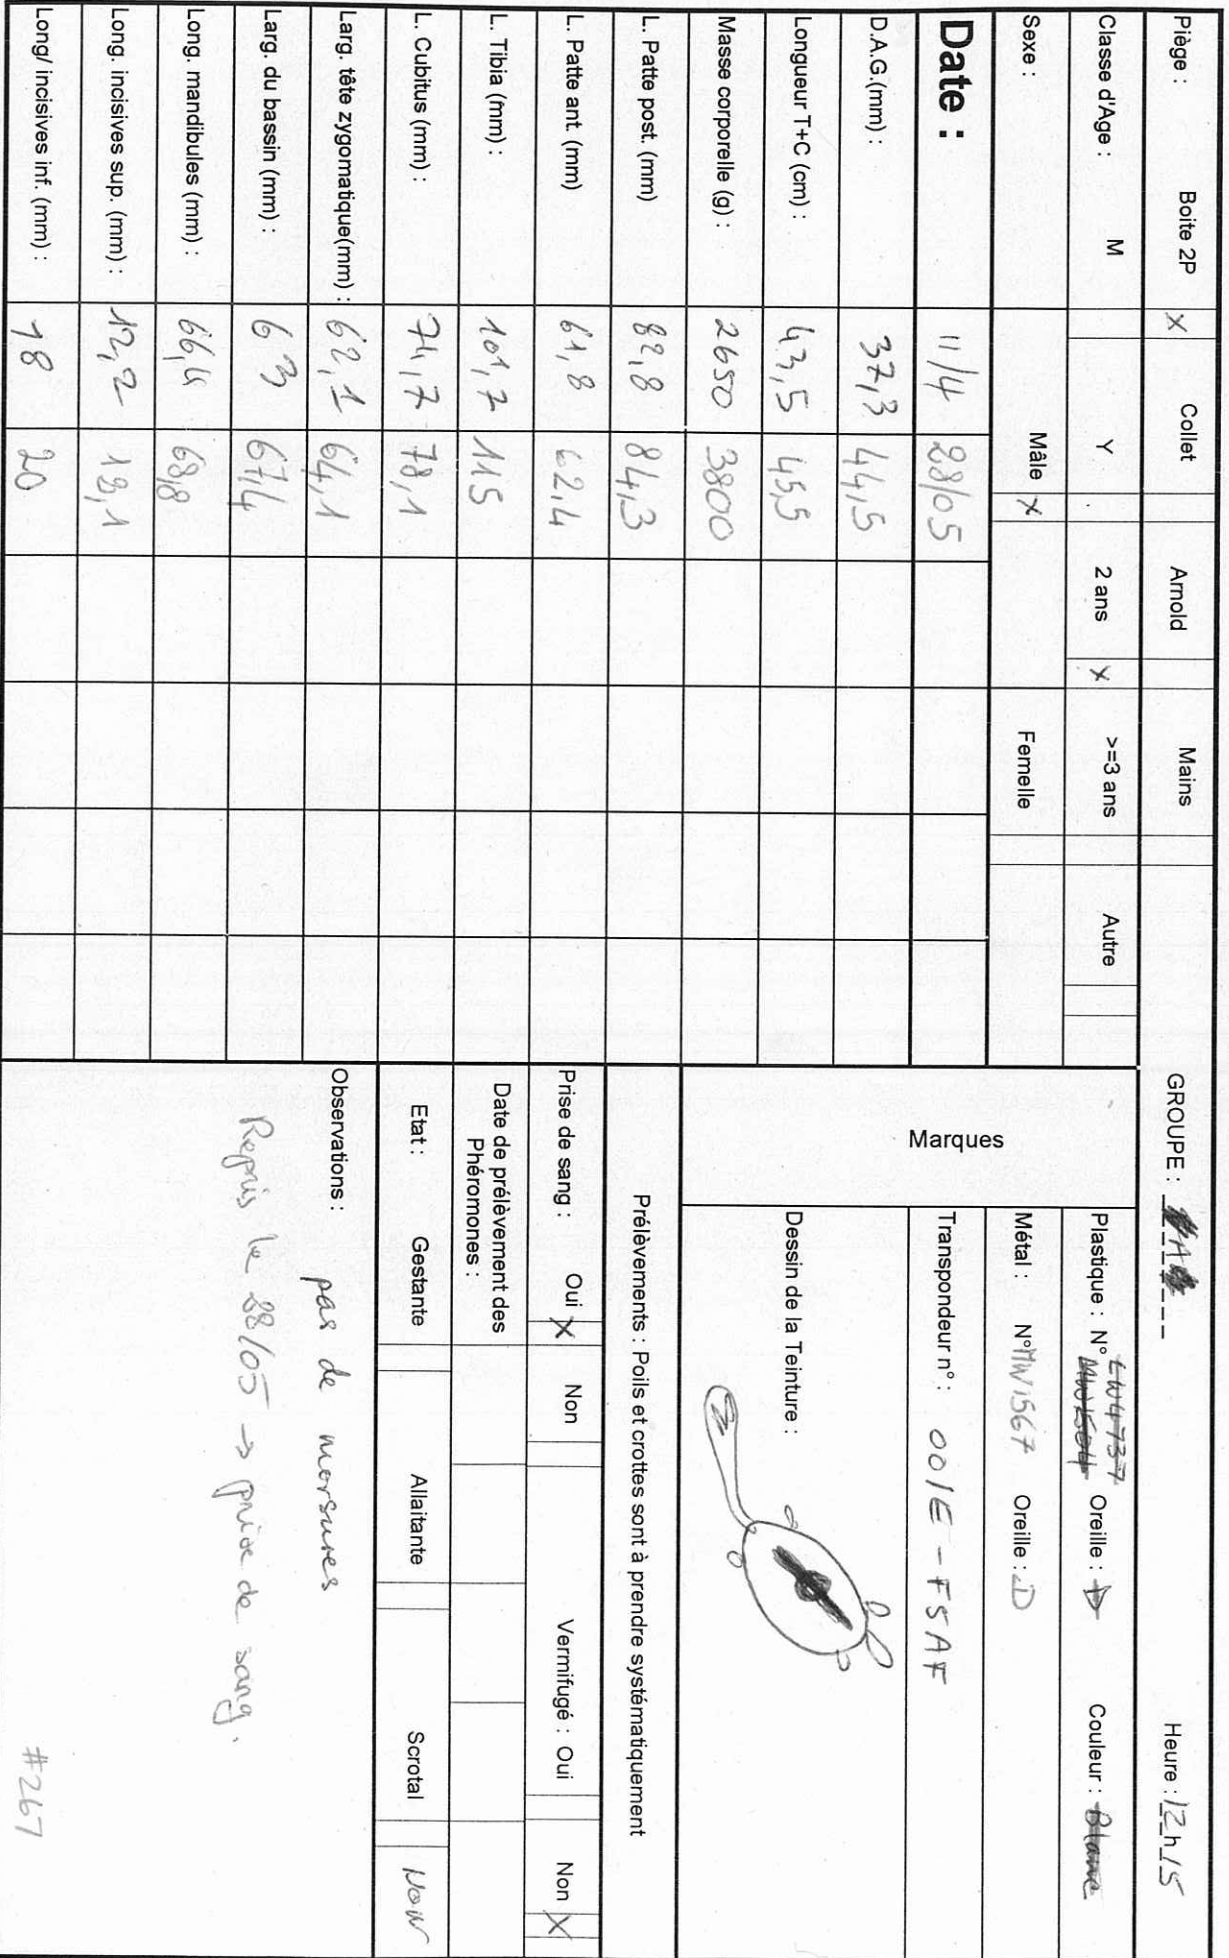 Piège : Boite 2P X Collet Arnold Mains
Classe d'Age : M Y 2 ans X >=3 ans Autre
Sexe : Mâle X Femelle
Date : 11/4 28/05
D.A.G.(mm) : 37,3 44,5
Longueur T+C (cm) : 43,5 45,5
Masse corporelle (g) : 2650 3800
L. Patte post. (mm) 82,8 84,3
L. Patte ant. (mm) 61,8 62,4
L. Tibia (mm) : 101,7 115
L. Cubitus (mm) : 74,7 78,1
Larg. tête zygomatique(mm) : 62,1 64,1
Larg. du bassin (mm) : 63 67,4
Long. mandibules (mm) : 66,4 68,8
Long. incisives sup. (mm) : 12,2 13,1
Long/ incisives inf. (mm) : 18 20
GROUPE : A Heure : 12 h 15
Marques
Plastique : N° LW4737 Oreille : D Couleur : Blanc
Métal : N° MW1567 Oreille : D
Transpondeur n° : 001E - F5AF
Dessin de la Teinture :
Prélèvements : Poils et crottes sont à prendre systématiquement
Prise de sang : Oui X Non Vermifugé : Oui Non X
Date de prélèvement des
Phéromones :
Etat : Gestante Allaitante Scrotal Non
Observations : pas de morsures
Repris le 28/05 → prise de sang.
#267